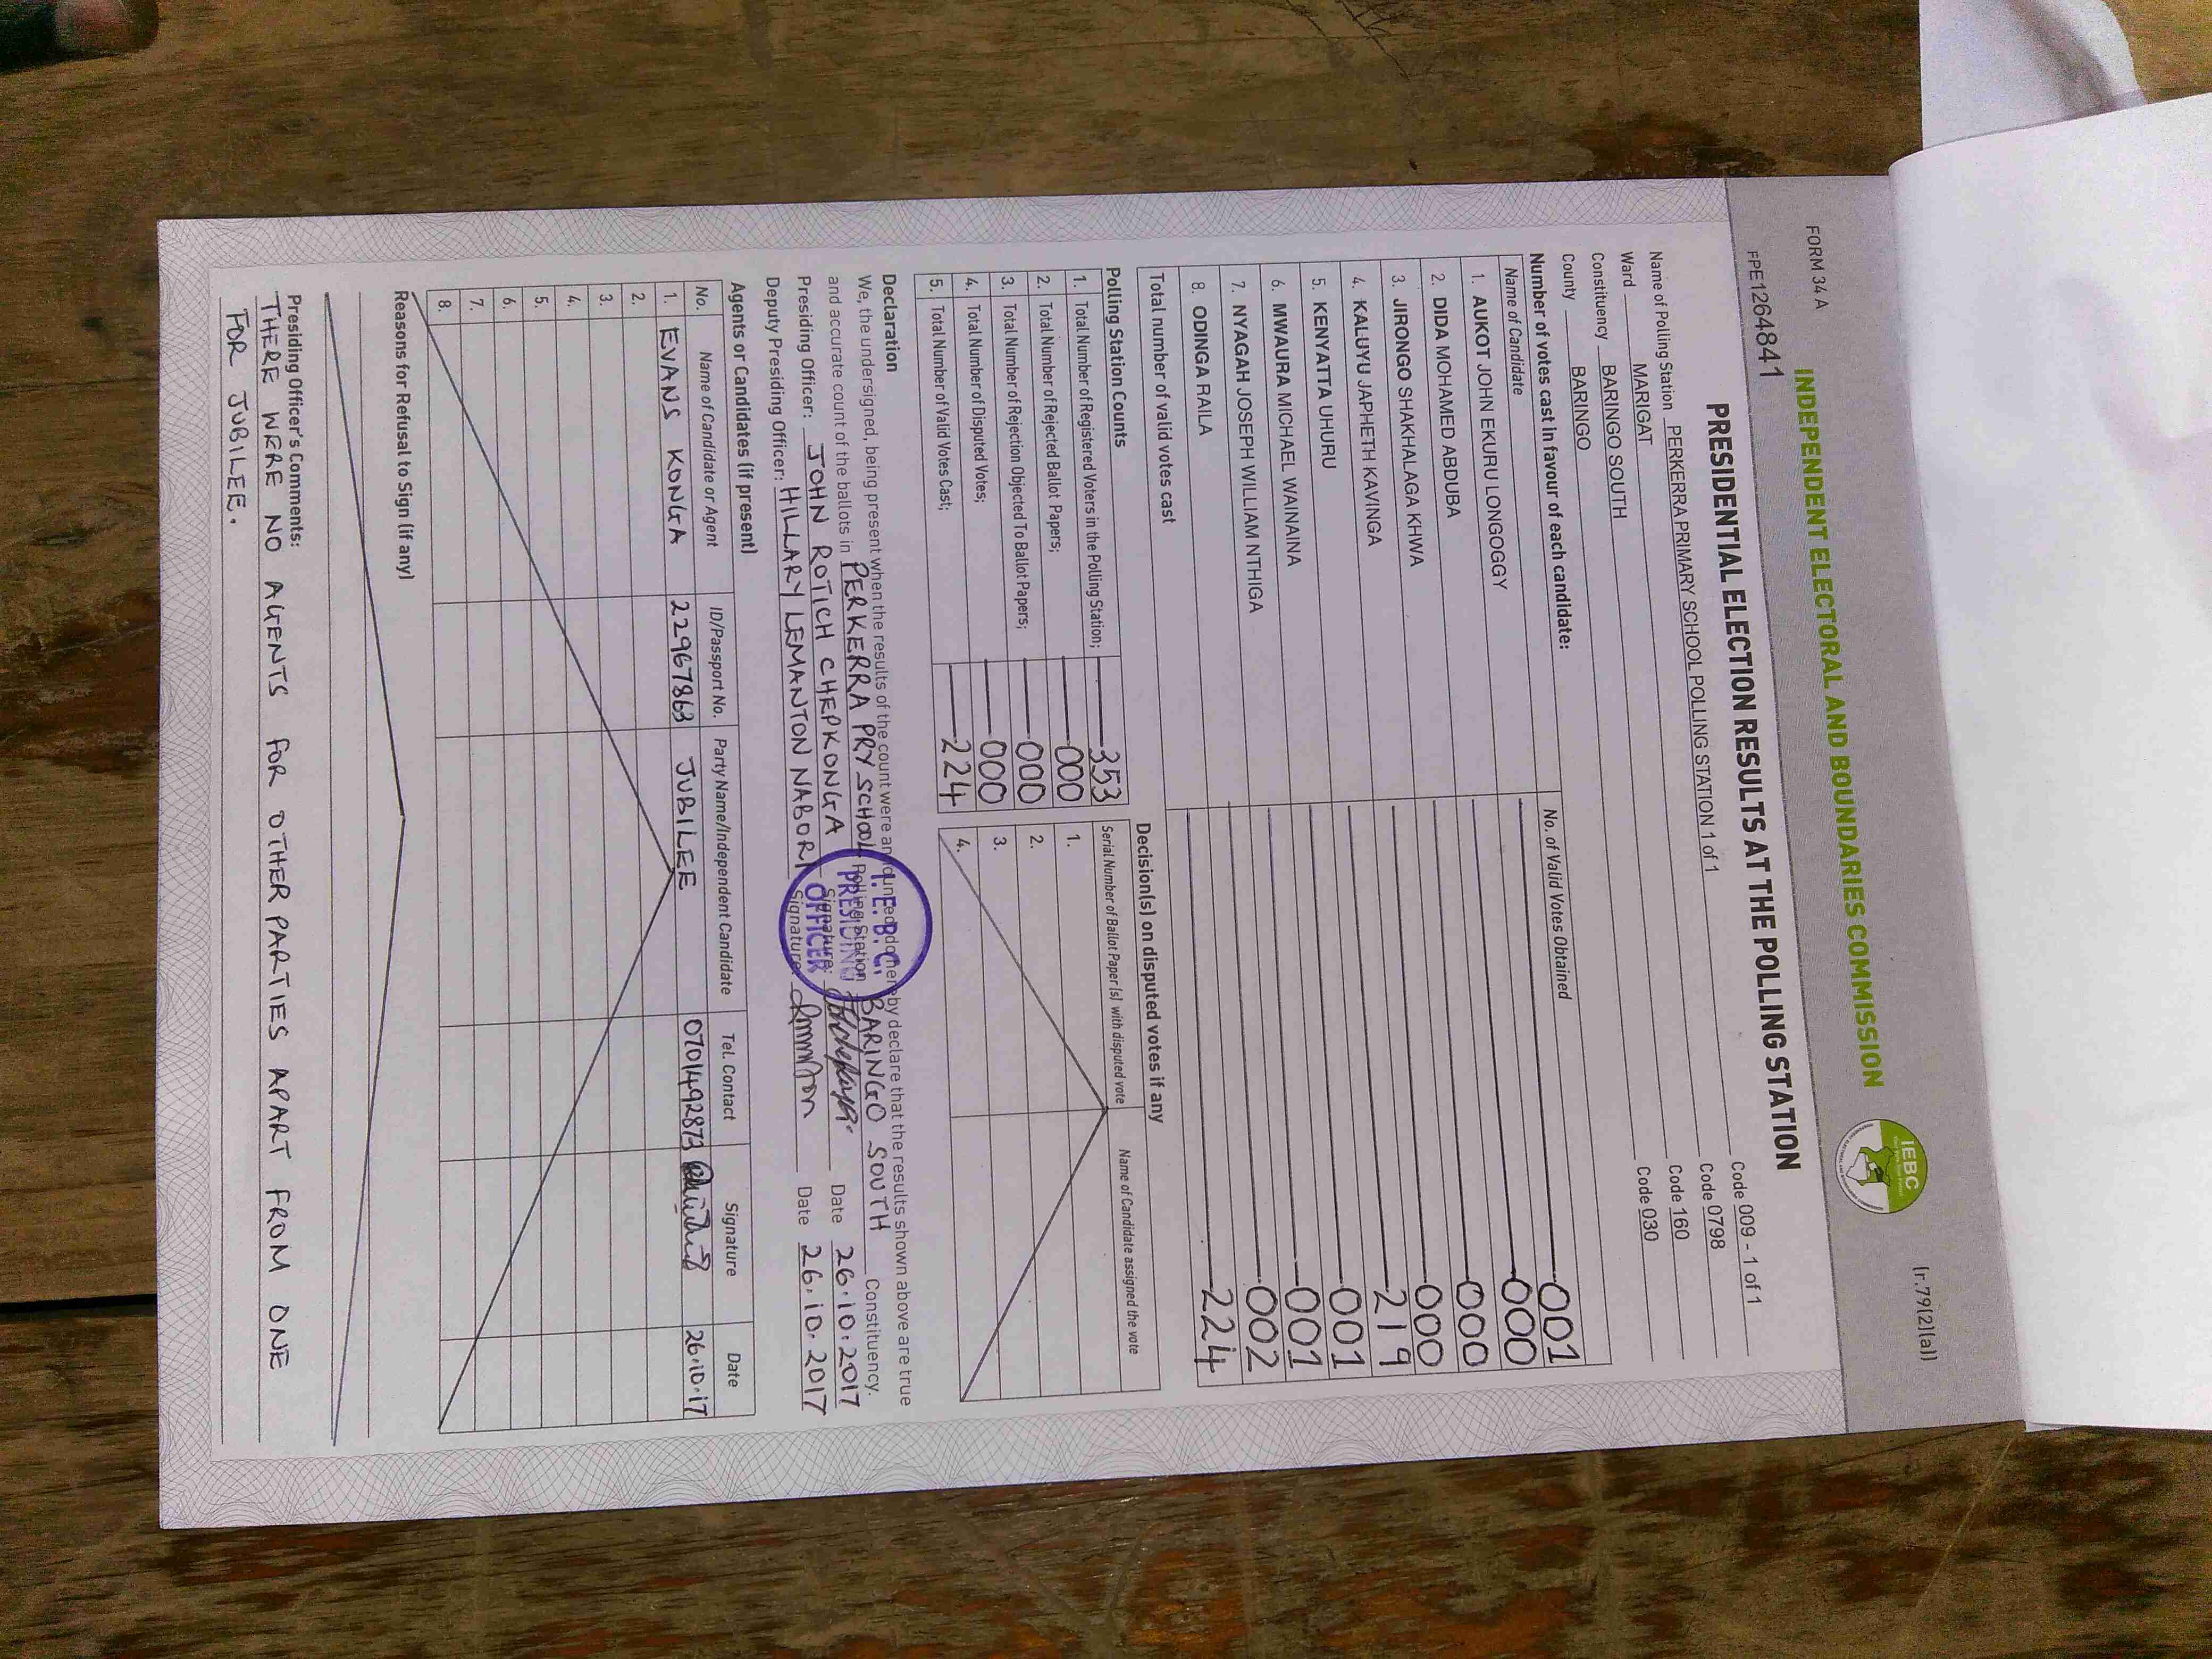 FORM 34 A
(r.79(2)(a))
INDEPENDENT ELECTORAL AND BOUNDARIES COMMISSION
IEBC
FPE1264841
PRESIDENTIAL ELECTION RESULTS AT THE POLLING STATION
Name of Polling Station PERKERRA PRIMARY SCHOOL POLLING STATION 1 of 1 Code 009 - 1 of 1
Ward MARIGAT Code 0798
Constituency BARINGO SOUTH Code 160
County BARINGO Code 030
Number of votes cast in favour of each candidate:
Name of Candidate No. of Valid Votes Obtained
1. AUKOT JOHN EKURU LONGOGGY 001
2. DIDA MOHAMED ABDUBA 000
3. JIRONGO SHAKHALAGA KHWA 000
4. KALUYU JAPHETH KAVINGA 000
5. KENYATTA UHURU 219
6. MWAURA MICHAEL WAINAINA 001
7. NYAGAH JOSEPH WILLIAM NTHIGA 001
8. ODINGA RAILA 002
Total number of valid votes cast 224
Polling Station Counts
1. Total Number of Registered Voters in the Polling Station; 353
2. Total Number of Rejected Ballot Papers; 000
3. Total Number of Rejection Objected To Ballot Papers; 000
4. Total Number of Disputed Votes; 000
5. Total Number of Valid Votes Cast; 224
Decision(s) on disputed votes if any
Serial Number of Ballot Paper (s) with disputed vote Name of Candidate assigned the vote
1.
2.
3.
4.
Declaration
We, the undersigned, being present when the results of the count were announced, do hereby declare that the results shown above are true
and accurate count of the ballots in PERKERRA PRY SCHOOL Polling Station BARINGO SOUTH Constituency.
Presiding Officer: JOHN ROTICH CHEPKONGA Signature: Date 26.10.2017
Deputy Presiding Officer: HILLARY LEMANTON NABORI Signature: Date 26.10.2017
I.E.B.C.
PRESIDING
OFFICER
Agents or Candidates (if present)
No. Name of Candidate or Agent ID/Passport No. Party Name/Independent Candidate Tel. Contact Signature Date
1. EVANS KONGA 22967863 JUBILEE 0701492873 26.10.17
2.
3.
4.
5.
6.
7.
8.
Reasons for Refusal to Sign (if any)
Presiding Officer's Comments:
THERE WERE NO AGENTS FOR OTHER PARTIES APART FROM ONE
FOR JUBILEE.